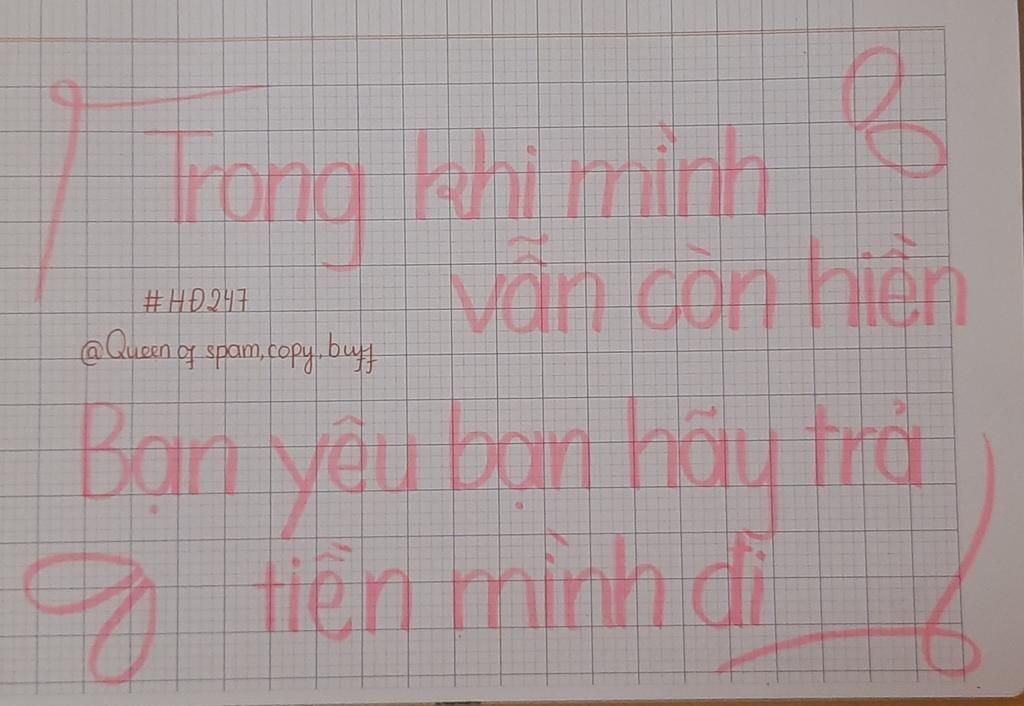 Trong khi mình
vẫn còn hiền
#HĐ247
@Queen of spam,copy,buff
Bạn yêu bạn hãy trả
tiền mình đi